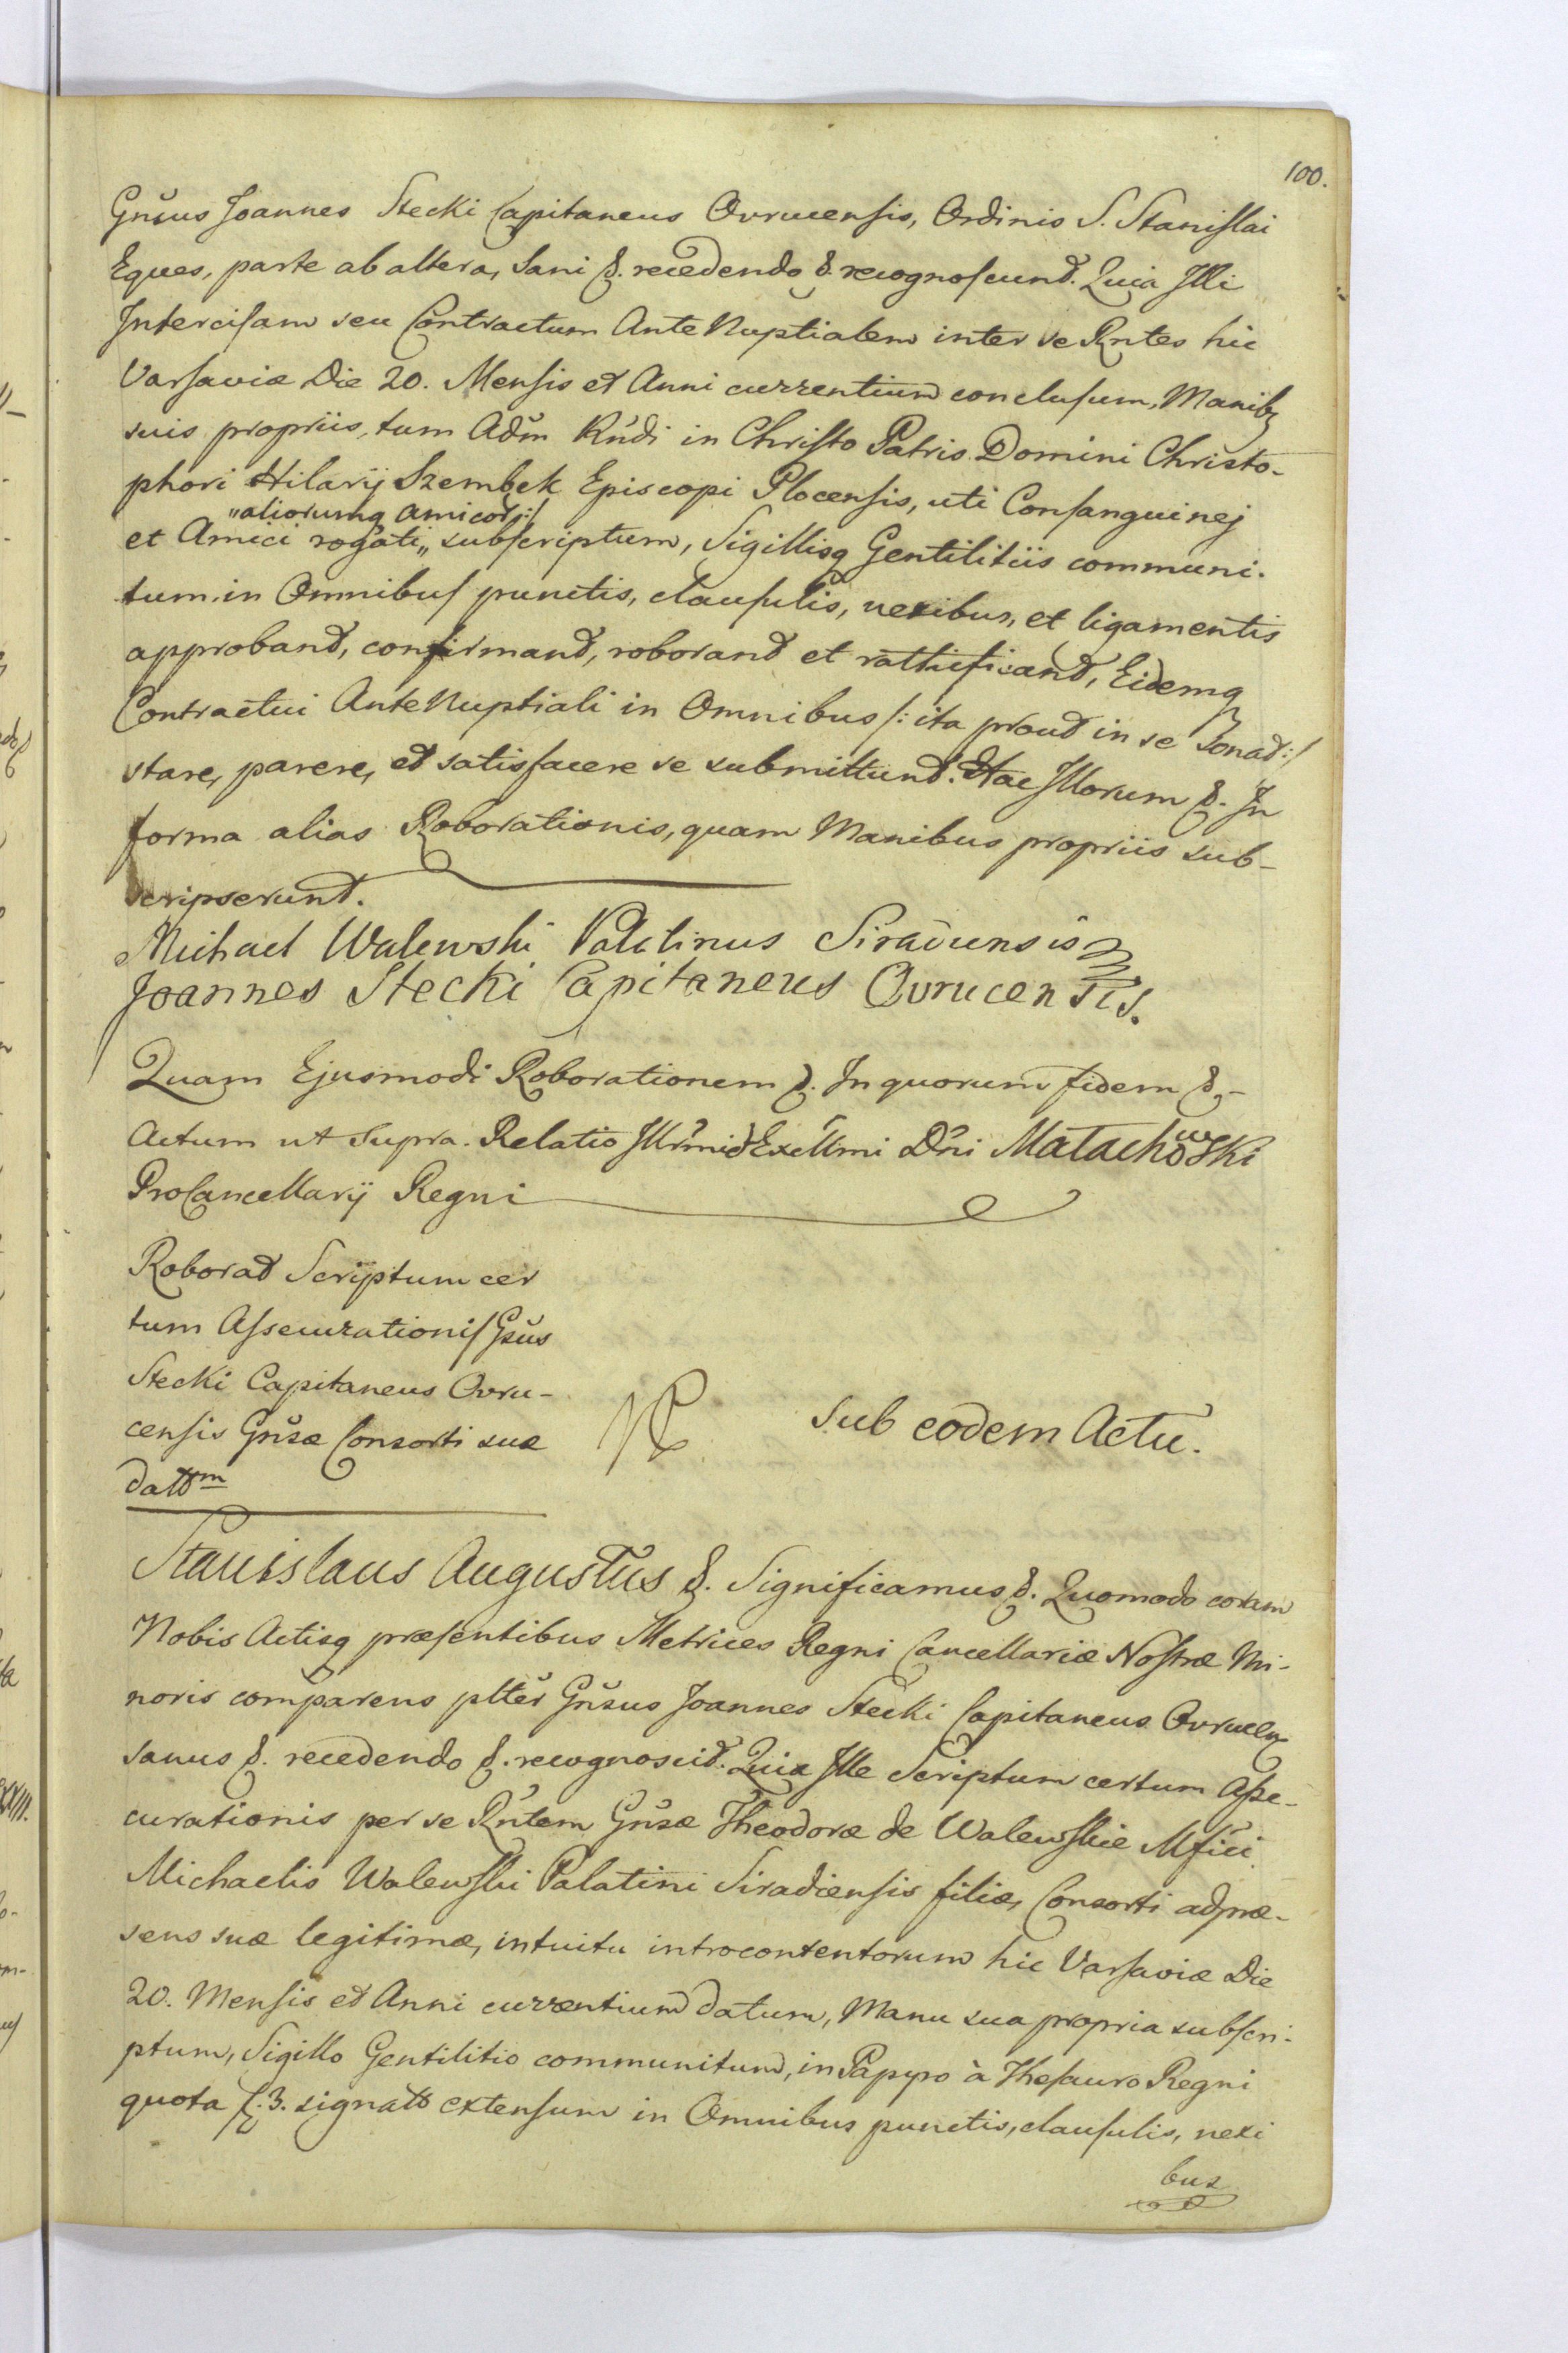 100.
Gn̆sus Joannes Stecki Capitaneus Ovrucensis, Ordinis S. Stanislai
Eques, parte ab altera, Sani &. recedendo &. recognoscunt. Quia Illi
Intercisam seu Contractum Ante Nuptialem inter se Rntes hic
Varsaviæ Die 20. Mensis et Anni currentium conclusum, Manibq
suis propriis, tum Adm̃ Rn̆di in Christo Patris Domini Christo-
phori Hilarij Szembek Episcopi Plocensis, uti Consanguinej
„aliorumq amicor:/
et Amici rogati „ subscriptum, Sigillisq Gentilitiis communi-
tum in Omnibus punctis, clausulis, nexibus, et ligamentis
approbant, confirmant, roborant et rattificant, Eidemq
Contractui Ante Nuptiali in Omnibus /: ita prout in se sonat :/
stare, parere, et satisfacere se submittunt. Hac Illorum &. In
forma alias Roborationis, quam Manibus propriis sub-
scripserunt.
Michael Walewski Palatinus Siradiensis
Joannes Stecki Capitaneus Ovrucensis.
Quam Ejusmodi Roborationem &. In quorum fidem &-
Actum ut Supra. Relatio Illr̃mi et Excll̃mi Dn̆i Małachowski
ProCancellarij Regni
Roborat Scriptum cer
tum Assecurationis Gsŭs
Stecki Capitaneus Ovru-
censis Gn̆sæ Consorti suæ
datt<sup>m</sup>
Sub eodem Actu.
Stanislaus Augustus &. Significamus &. Quomodo coram
Nobis Actisq præsentibus Metrices Regni Cancellariæ Nostræ Mi-
noris comparens pltĕr Gn̆sus Joannes Stecki Capitaneus Ovrucen
sanus &. recedendo &. recognoscit. Quia Ille Scriptum certum Asse-
curationis per se Rn̆tem Gn̆sæ Theodoræ de Walewskie Mf̆ici
Michaelis Walewski Palatini Siradiensis filiæ, Consorti adpræ-
sens suæ legitimæ, intuitu introcontentorum hic Varsaviæ Die
20. Mensis et Anni currentium datum, Manu sua propria subscri-
ptum, Sigillo Gentilitio communitum, in Papyro à Thesauro Regni
quota f. 3. signatto extensum in Omnibus punctis, clausulis, nexi
bus